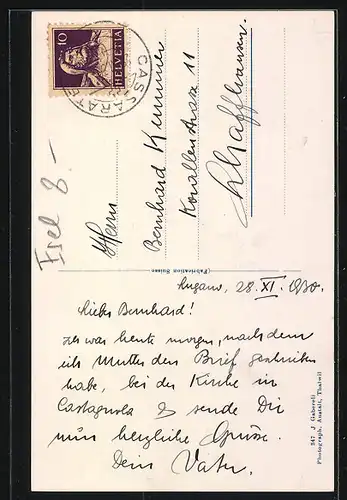 10
HELVETIA
CASSARATE
Herrn
Bernhard Kummer
Korallenstrasse 11
Schaffhausen
Fabrication Suisse
Lugano, 28. XI. 1930.
Lieber Bernhard!
Ich war heute morgen, nachdem
ich Mutter den Brief geschrieben
habe, bei der Kirche in
Castagnola & sende Dir
nun herzliche Grüsse.
Dein Vater.
347 J. Gaberell
Photograph. Anstalt, Thalwil
8.-